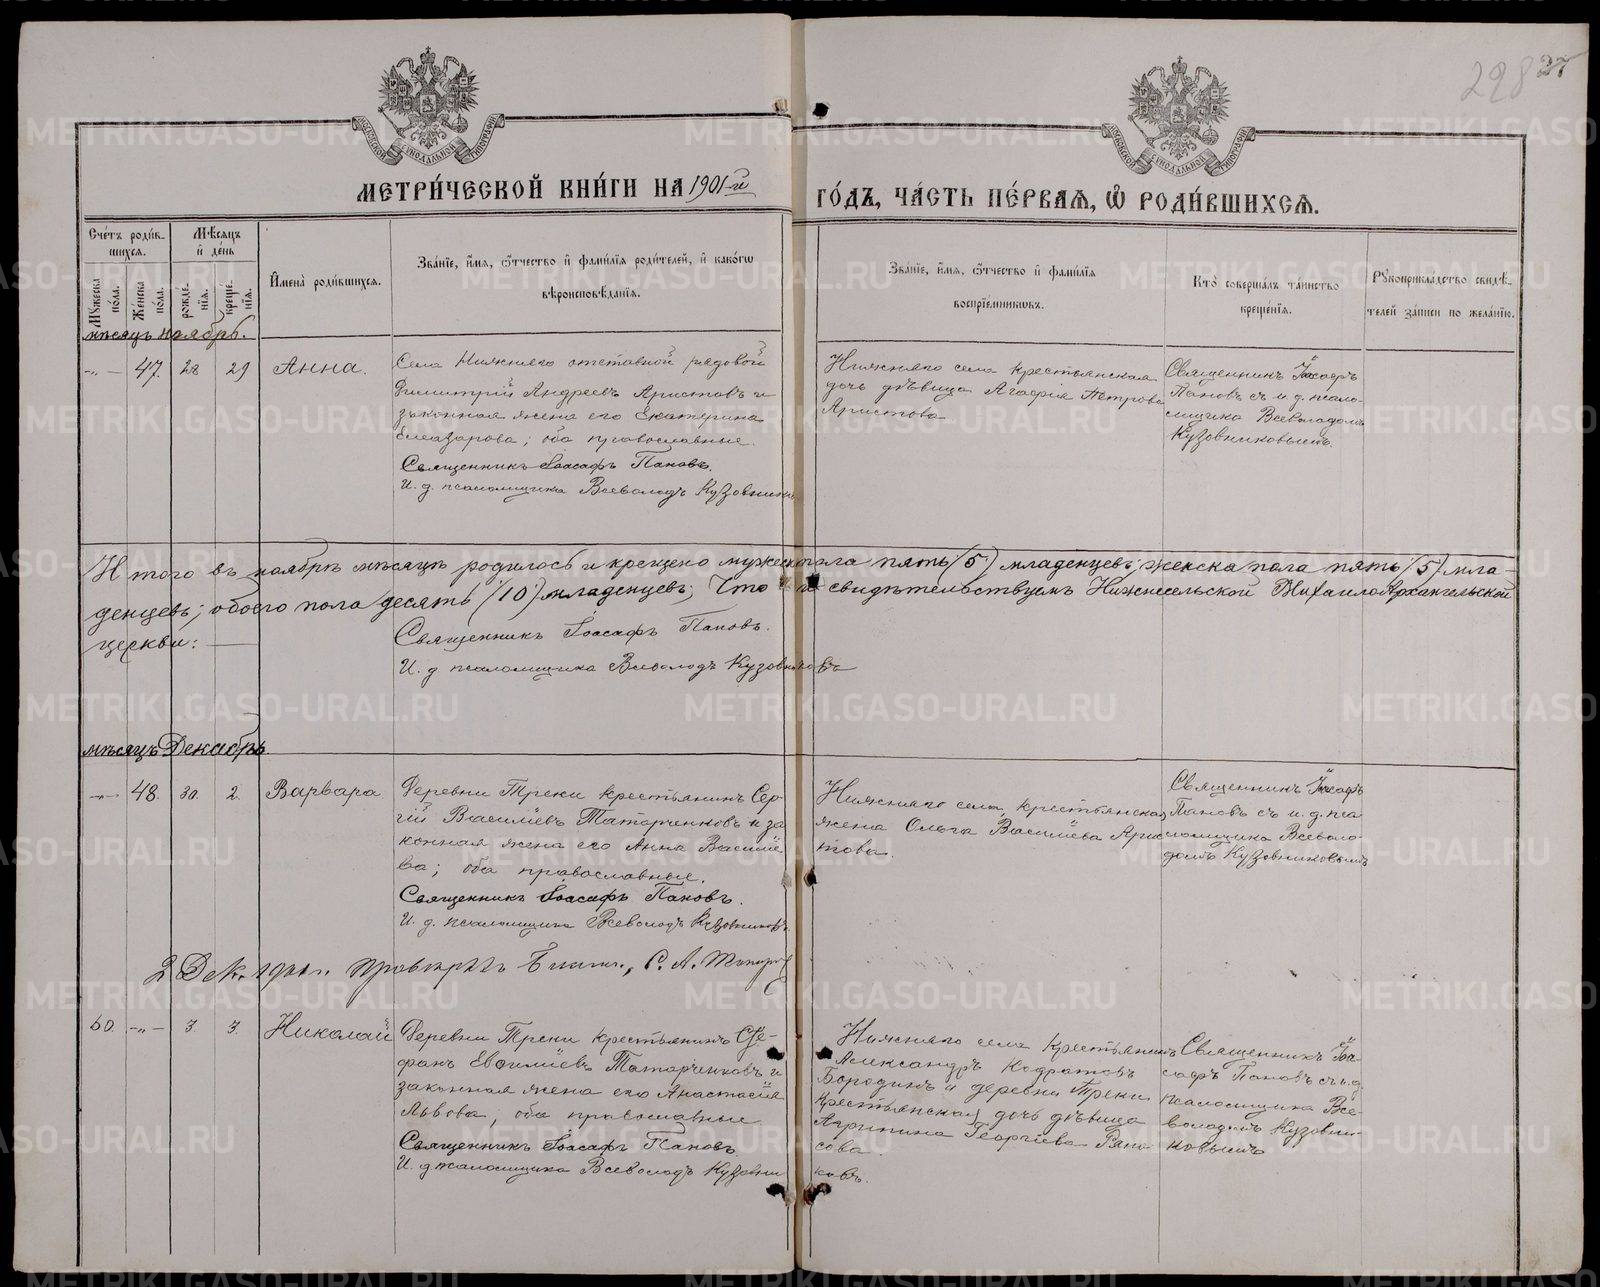 298 27
МЕТРИ́ЧЕСКОЙ КНИ́ГИ НА 1901-й ГО́ДЪ, ЧА́СТЬ ПЕ́РВАЯ, Ѡ РОДИ́ВШИХСЯ.
Сче́тъ роди́вшихся.
Му́жеска по́ла.
Же́нска по́ла.
Мѣ́сяцъ и҆ де́нь
рожде́нїѧ.
креще́нїѧ.
И҆мена̀ роди́вшихся.
Зва́нїе, и҆́мя, ѻ҆́тчество и҆ фами́лїя роди́телей, и҆ како́гѡ
вѣроисповѣ́данїя.
Зва́нїе, и҆́мя, ѻ҆́тчество и҆ фами́лїя
воспрїе́мниковъ.
Кто̀ соверша́лъ та́инство
креще́нїя.
Рꙋкоприкла́дство свидѣ́-
телей за́писи по жела́нїю.
мѣсяцъ ноябрь.
-„- 47. 28 29 Анна.
Села Нижняго отставной рядовой
Димитрій Андреевъ Аристовъ и
законная жена его Екатерина
Елеазарова; оба православные.
Священникъ Іоасафъ Пановъ.
И. д. псаломщика Всеволодъ Кузовниковъ
Нижняго села крестьянская
дочь дѣвица Агафія Петрова
Аристова
Священникъ Іоасафъ
Пановъ съ и. д. псало-
мщика Всеволодомъ
Кузовниковымъ.
Итого въ ноябрѣ мѣсяцѣ родилось и крещено мужеска пола пять (5) младенцевъ; женска пола пять (5) мла-
денцевъ; обоего пола десять (10) младенцевъ; Что и свидѣтельствуемъ Нижнесельской Михаило-Архангельской
церкви:
Священникъ Іоасафъ Пановъ.
И. д. псаломщика Всеволодъ Кузовниковъ
мѣсяцъ Декабрь.
-„- 48. 30. 2. Варвара
Деревни Треки крестьянинъ Сер-
гій Василіевъ Татарченковъ и за
конная жена его Анна Василіе
ва; оба православные.
Священникъ Іоасафъ Пановъ.
И. д. псаломщика Всеволодъ Кузовниковъ.
Нижняго села крестьянская
жена Ольга Василіева Арис
това.
Священникъ Іоасафъ
Пановъ съ и. д. пса
ломщика Всеволо-
домъ Кузовниковымъ
2 Дек. 1901 г. провѣрялъ
50. -„- 3. 3. Николай
Деревни Треки крестьянинъ Сте-
фанъ Василіевъ Татарченковъ и
законная жена его Анастасія
Львова, оба православные
Священникъ Іоасафъ Пановъ
И. д псаломщика Всеволодъ Кузовни
ковъ.
Нижняго села крестьянинъ
Александръ Кодратовъ
Бородинъ и деревни Треки
крестьянская дочь дѣвица
Агрипина Георгіева
сова.
Священникъ Іоа-
сафъ Пановъ съ и.д.
псаломщика Все-
володомъ Кузовни-
ковымъ
METRIKI.GASO-URAL.RU